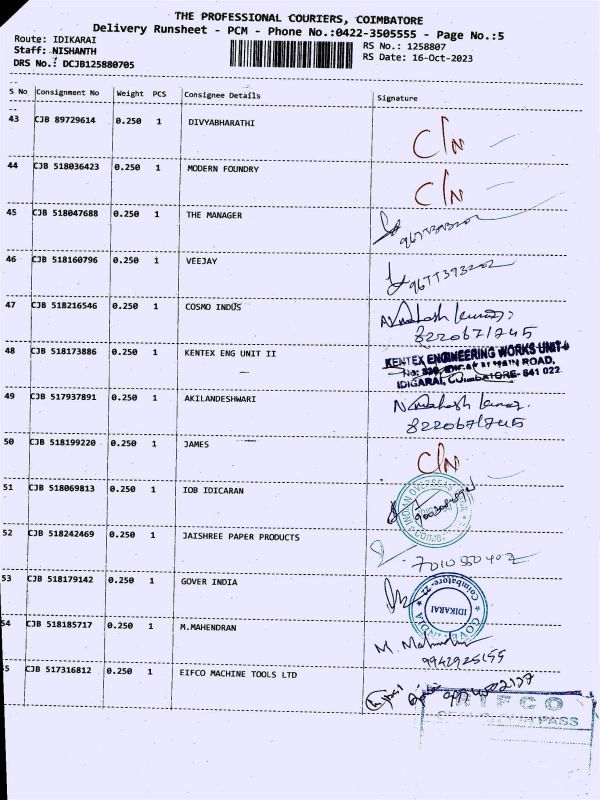 THE PROFESSIONAL COURIERS, COIMBATORE
Delivery Runsheet - PCM - Phone No.:0422-3505555 - Page No.:5
Route: IDIKARAI
RS No.: 1258807
Staff: NISHANTH
RS Date: 16-Oct-2023
DRS No.: DCJB125880705
S No Consignment No Weight PCS Consignee Details Signature
43 CJB 89729614 0.250 1 DIVYABHARATHI C/N
44 CJB 518036423 0.250 1 MODERN FOUNDRY C/N
45 CJB 518047688 0.250 1 THE MANAGER
46 CJB 518160796 0.250 1 VEEJAY
47 CJB 518216546 0.250 1 COSMO INDUS
8220671745
48 CJB 518173886 0.250 1 KENTEX ENG UNIT II
KENTEX ENGINEERING WORKS UNIT-II
MAIN ROAD,
IDIGARAI, COIMBATORE- 641 022.
49 CJB 517937891 0.250 1 AKILANDESHWARI
8220671745
50 CJB 518199220 0.250 1 JAMES C/N
51 CJB 518069813 0.250 1 IOB IDICARAN
INDIAN OVERSEAS
52 CJB 518242469 0.250 1 JAISHREE PAPER PRODUCTS
53 CJB 518179142 0.250 1 GOVER INDIA
Coimbatore-22
IDIKARAI
54 CJB 518185717 0.250 1 M.MAHENDRAN
9942925155
55 CJB 517316812 0.250 1 EIFCO MACHINE TOOLS LTD
EIFCO
PASS